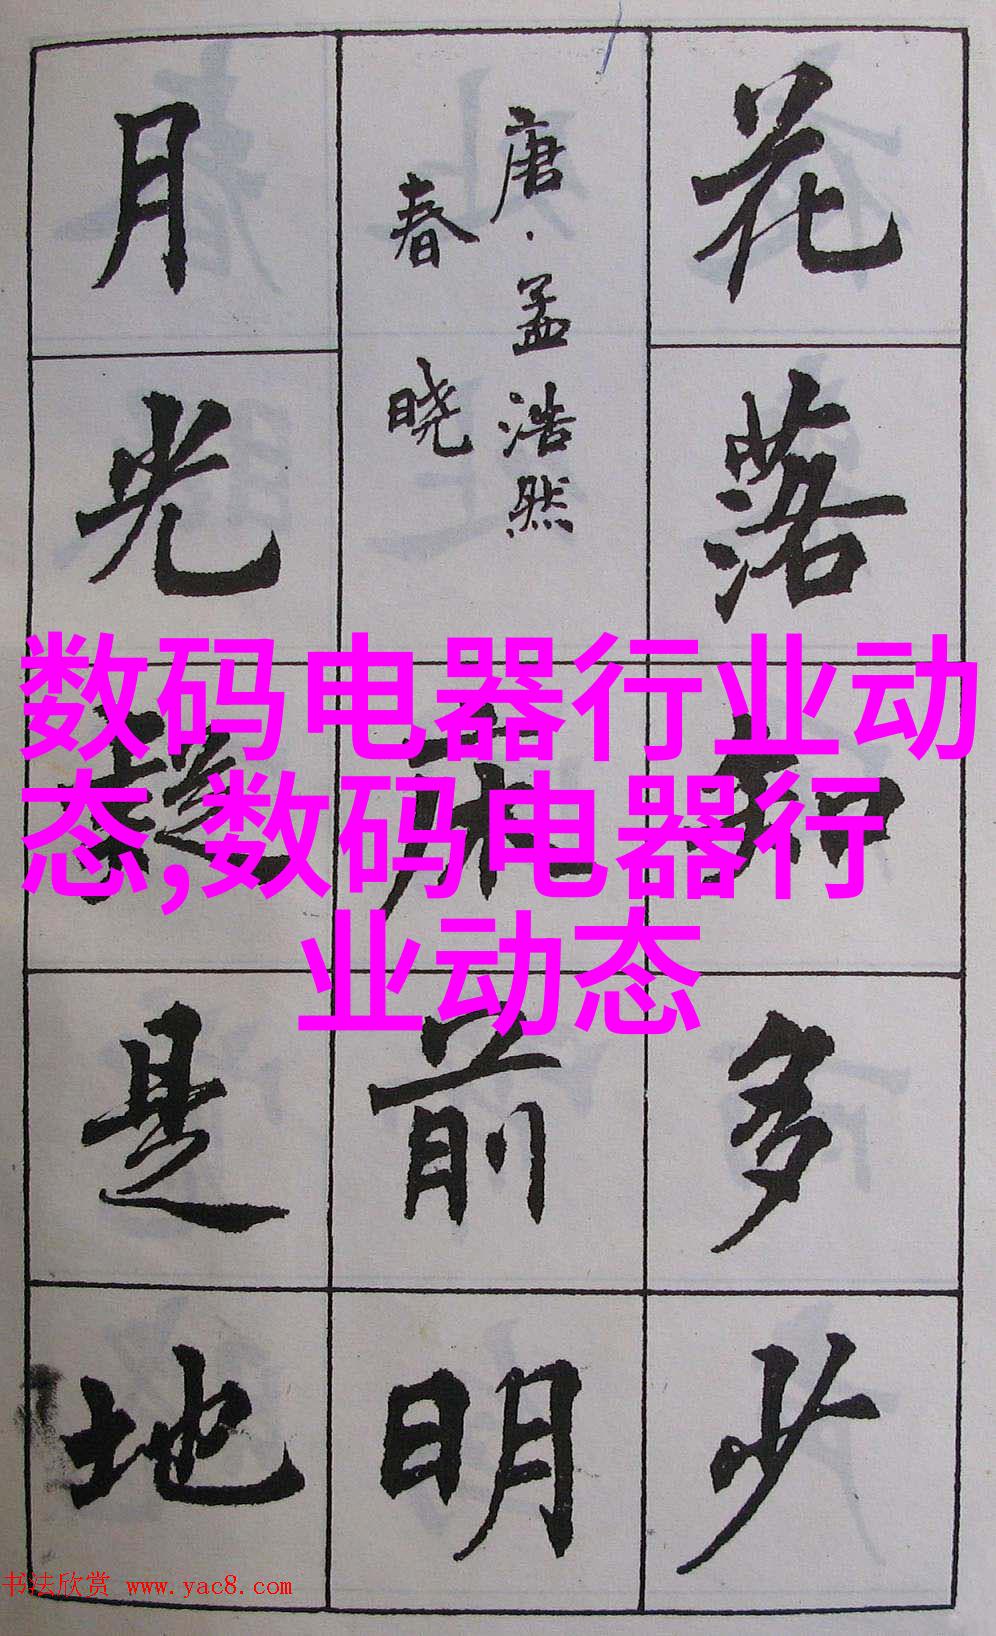 花落知多少
唐·孟浩然
春晓
床前明
月光疑是地
数码电器行业动
态,数码电器行
业动态
书法欣赏 www.yac8.com